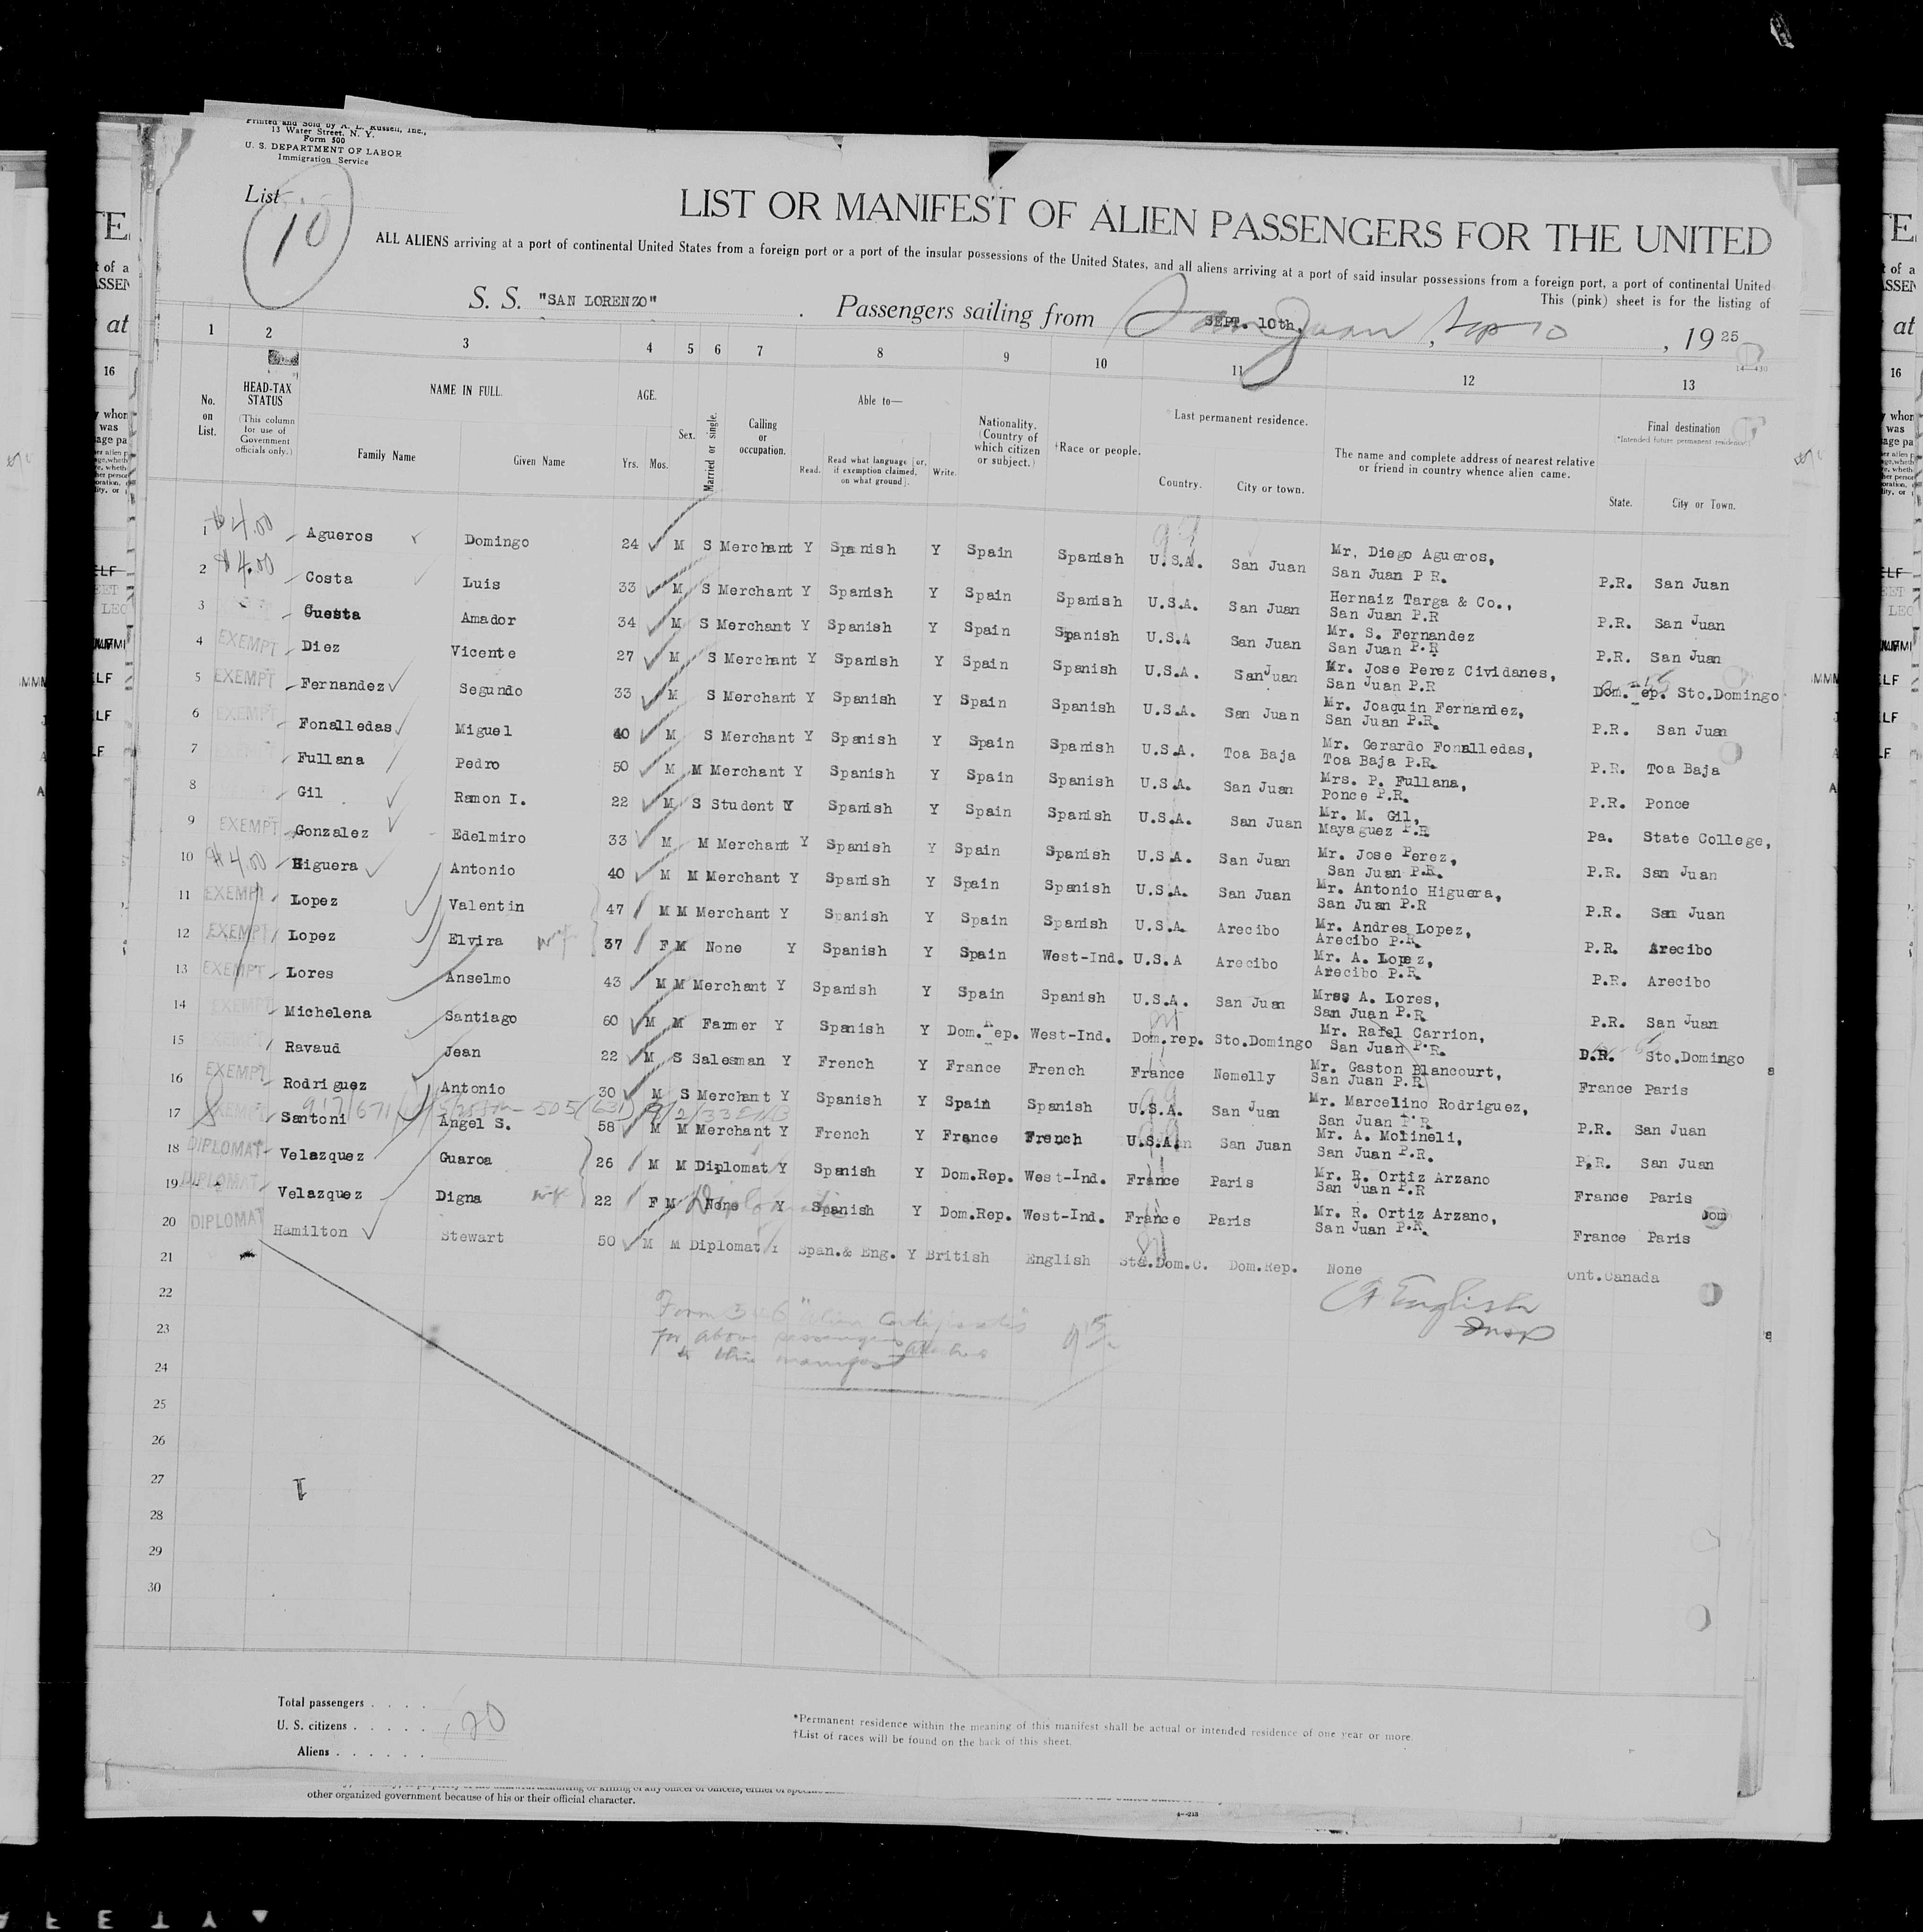 Printed and Sold by A. L. Russell, Inc.,
13 Water Street, N. Y.
Form 500
U. S. DEPARTMENT OF LABOR
Immigration Service
List 10
LIST OR MANIFEST OF ALIEN PASSENGERS FOR THE UNITED
ALL ALIENS arriving at a port of continental United States from a foreign port or a port of the insular possessions of the United States, and all aliens arriving at a port of said insular possessions from a foreign port, a port of continental United
This (pink) sheet is for the listing of
S. S. "SAN LORENZO" Passengers sailing from San Juan, Sep 10 SEPT. 10th, , 1925
1 2 3 4 5 6 7 8 9 10 11 12 13
14-430
No. on List. HEAD-TAX STATUS (This column for use of Government officials only.) NAME IN FULL. Family Name Given Name AGE. Yrs. Mos. Sex. Married or single. Calling or occupation. Able to— Read. Read what language [or, if exemption claimed, on what ground]. Write. Nationality. (Country of which citizen or subject.) †Race or people. Last permanent residence. Country. City or town. The name and complete address of nearest relative or friend in country whence alien came. Final destination (*Intended future permanent residence) State. City or Town.
1 $4.00 Agueros Domingo 24 M S Merchant Y Spanish Y Spain Spanish U.S.A. San Juan Mr. Diego Agueros, San Juan P R. P.R. San Juan
2 $4.00 Costa Luis 33 M S Merchant Y Spanish Y Spain Spanish U.S.A. San Juan Hernaiz Targa & Co., San Juan P.R P.R. San Juan
3 Cuesta Amador 34 M S Merchant Y Spanish Y Spain Spanish U.S.A San Juan Mr. S. Fernandez San Juan P.R P.R. San Juan
4 EXEMPT Diez Vicente 27 M S Merchant Y Spanish Y Spain Spanish U.S.A. San Juan Mr. Jose Perez Cividanes, San Juan P.R Dom. Rep. Sto.Domingo
5 EXEMPT Fernandez Segundo 33 M S Merchant Y Spanish Y Spain Spanish U.S.A. San Juan Mr. Joaquin Fernandez, San Juan P.R. P.R. San Juan
6 EXEMPT Fonalledas Miguel 40 M S Merchant Y Spanish Y Spain Spanish U.S.A. Toa Baja Mr. Gerardo Fonalledas, Toa Baja P.R. P.R. Toa Baja
7 Fullana Pedro 50 M M Merchant Y Spanish Y Spain Spanish U.S.A. San Juan Mrs. P. Fullana, Ponce P.R. P.R. Ponce
8 Gil Ramon I. 22 M S Student Y Spanish Y Spain Spanish U.S.A. San Juan Mr. M. Gil, Mayaguez P.R Pa. State College,
9 EXEMPT Gonzalez Edelmiro 33 M M Merchant Y Spanish Y Spain Spanish U.S.A. San Juan Mr. Jose Perez, San Juan P.R. P.R. San Juan
10 $4.00 Higuera Antonio 40 M M Merchant Y Spanish Y Spain Spanish U.S.A. San Juan Mr. Antonio Higuera, San Juan P.R P.R. San Juan
11 EXEMPT Lopez Valentin 47 M M Merchant Y Spanish Y Spain Spanish U.S.A. Arecibo Mr. Andres Lopez, Arecibo P.R. P.R. Arecibo
12 EXEMPT Lopez Elvira wife 37 F M None Y Spanish Y Spain West-Ind. U.S.A Arecibo Mr. A. Lopez, Arecibo P.R. P.R. Arecibo
13 EXEMPT Lores Anselmo 43 M M Merchant Y Spanish Y Spain Spanish U.S.A. San Juan Mrss A. Lores, San Juan P.R. P.R. San Juan
14 EXEMPT Michelena Santiago 60 M M Farmer Y Spanish Y Dom.Rep. West-Ind. Dom.rep. Sto.Domingo Mr. Rafel Carrion, San Juan P.R. D.R. Sto.Domingo
15 EXEMPT Ravaud Jean 22 M S Salesman Y French Y France French France Nemelly Mr. Gaston Blancourt, San Juan P.R France Paris
16 EXEMPT Rodriguez Antonio 30 M S Merchant Y Spanish Y Spain Spanish U.S.A. San Juan Mr. Marcelino Rodriguez, San Juan P.R P.R. San Juan
17 EXEMPT Santoni Angel S. 58 M M Merchant Y French Y France French U.S.A. San Juan Mr. A. Molineli, San Juan P.R. P.R. San Juan
18 DIPLOMAT Velazquez Guaroa 26 M M Diplomat Y Spanish Y Dom.Rep. West-Ind. France Paris Mr. R. Ortiz Arzano San Juan P.R France Paris
19 DIPLOMAT Velazquez Digna wife 22 F M None Y Spanish Y Dom.Rep. West-Ind. France Paris Mr. R. Ortiz Arzano, San Juan P.R. France Paris
20 DIPLOMAT Hamilton Stewart 50 M M Diplomat Y Span.& Eng. Y British English Sto.Dom.C. Dom.Rep. None Ont.Canada
21
22
23
24
25
26
27
28
29
30
Form 346 "Alien Certificates"
for above passengers attached
to this manifest
English
Insp
Total passengers . . . .
U. S. citizens . . . . . 20
Aliens . . . . . .
*Permanent residence within the meaning of this manifest shall be actual or intended residence of one year or more.
†List of races will be found on the back of this sheet.
other organized government because of his or their official character.